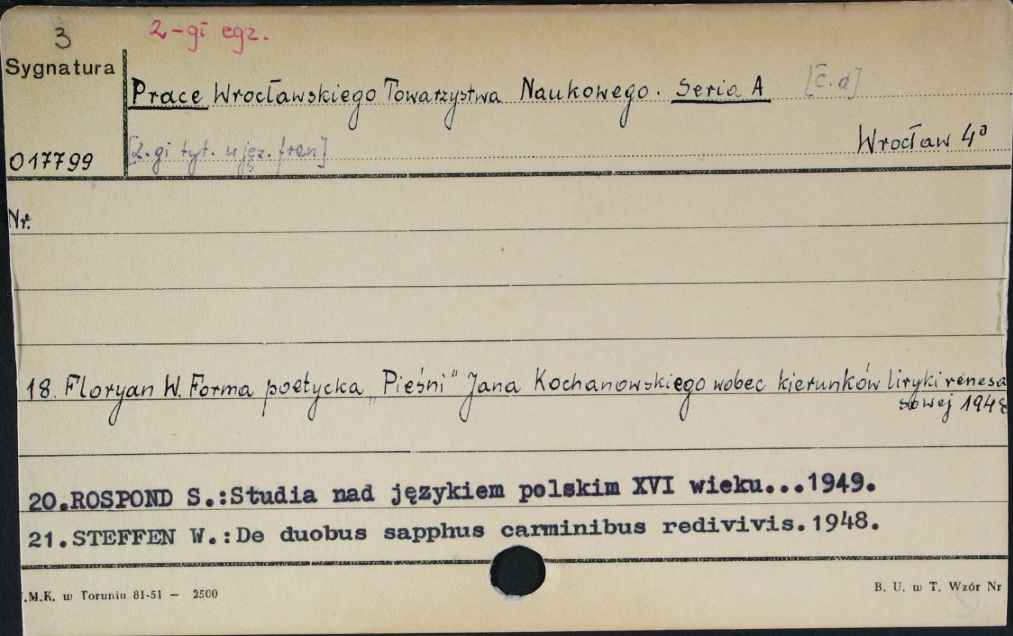 3 2-gi egz.
Sygnatura
Prace Wrocławskiego Towarzystwa Naukowego. Seria A [c.d]
Wrocław 4°
017799 [2-gi tyt. w jęz. fran]
Nr.
18. Floryan W. Forma poetycka „Pieśni" Jana Kochanowskiego wobec kierunków liryki renesa
sowej 1948
20.ROSPOND S.:Studia nad językiem polskim XVI wieku...1949.
21.STEFFEN W.:De duobus sapphus carminibus redivivis.1948.
.M.K. w Toruniu 81-51 — 2500
B. U. w T. Wzór Nr